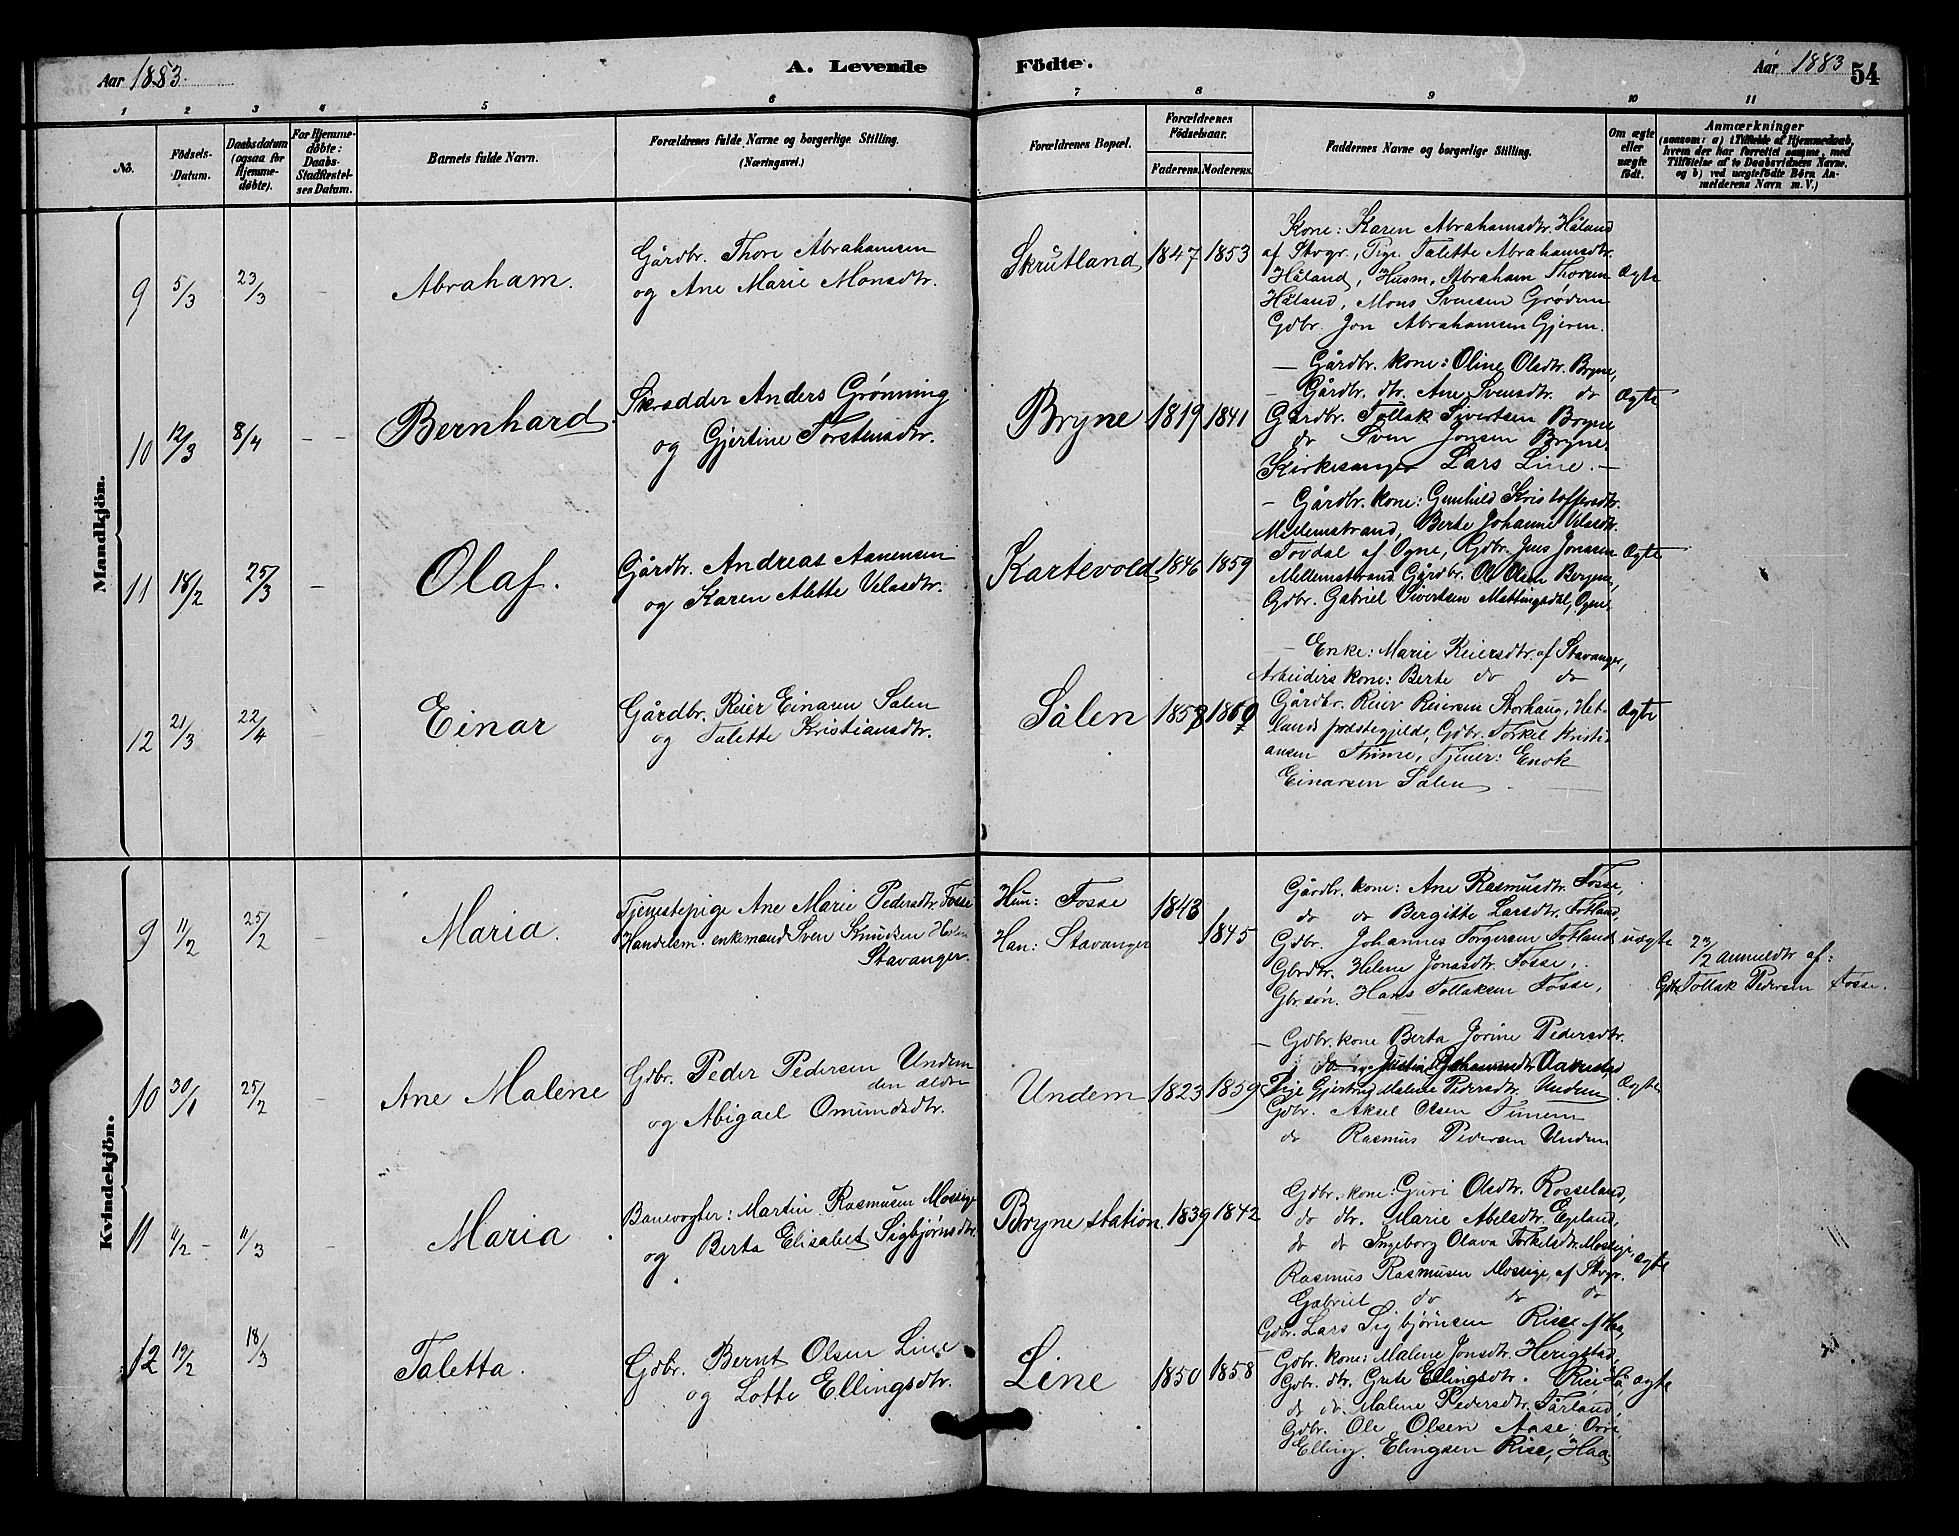 Aar 1883.
A. Levende
Födte.
Aar 1883
54
1
2
3
4
5
6
7
8
9
10
11
No.
Födsels-Datum.
Daabsdatum (ogsaa for Hjemme-döbte).
For Hjemme-döbte: Daabs-Stadfæstel-ses Datum.
Barnets fulde Navn.
Forældrenes fulde Navne og borgerlige Stilling.
(Næringsvei.)
Forældrenes Bopæl.
Forældrenes Födselsaar.
Faderens.
Moderens.
Faddernes Navne og borgerlige Stilling.
Om ægte eller uægte födt.
Anmærkninger
(saasom: a) i Tilfælde af Hjemmedaab,
hvem der har forrettet samme, med
Tilföielse af to Daabsvidners Navne.
og b) ved uægtefödte Börn An-
melderens Navn m. V.)
Mandkjön.
9 5/3 23/3 – Abraham.
Gårdbr. Thore Abrahamsen
og Ane Marie Monsdtr.
Skrutland 1847 1853
Kone: Karen Abrahamsdtr. Håland
af Stvgr., Pige Talette Abrahamsdtr.
Håland, Husm. Abraham Thorsen
Håland, Mons Svensen Grødem
Gdbr. Jon Abrahamsen Gjeren.
Ægte
10 12/3 8/4 – – Bernhard.
Skrædder Anders Grønning
og Gjertine Torstensdtr.
Bryne 1819 1841
– Gårdbr. kone: Oline Olsdtr. Bryne,
– Gårdbr. dtr. Ane Svensdtr. do
Gårdbr. Tollak Sivertsen Bryne
do Sven Jonsen Bryne.
Kirkesanger Lars Line. –
Ægte
11 18/2 25/3 – Olaf.
Gårdbr. Andreas Aanensen
og Karen Alette Velasdtr.
Kartevold 1846 1859
– Gårdbr. kone: Gunhild Kristoffersdtr.
Mellemstrand, Berte Johanne Velasdtr.
Tovdal af Ogne, Gdbr. Jens Jonasen
Mellemstrand Gårdbr. Ole Olsen Bergem,
Gdbr. Gabriel Sivertsen Mattingsdal, Ogne.
Ægte
12 21/3 22/4 Einar
Gårdbr. Reier Einarsen Sålen
og Talette Kristiansdtr.
Sålen
– Enke: Marie Reiersdtr. af Stavanger,
Arbeiders kone: Berte do do
Gårdbr. Reier Reiersen Storhaug, Het-
lands præstegjelde, Gdbr. Torkel Kristi-
ansen Thime, Tjener: Enok
Einarsen Sålen
Ægte
Kvindekjön.
9 11/2 25/2 – Maria.
Tjenestepige Ane Marie Pedersdtr. Fosse
Handelsm. enkemand Sven Knudsen
Stavanger.
Hun: Fosse 1843
Han: Stavanger 1845
Gårdbr. kone: Ane Rasmusdtr. Fosse,
do do Bergitte Larsdtr. Fotland,
Gdbr. Johannes Torgersen Fotland
Gbrdtr. Helene Jonasdtr. Fosse,
Gbr søn. Hans Tollaksen Fosse,
uægte
27/2 anmeldtr af:
Gdbr. Tollak Pedersen Fosse.
10 30/1 25/2 – Ane Malene
Gdbr. Peder Pedersen Undem
den ældre
og Abigael Omundsdtr.
Undem 1823 1859
– Gdbr. kone Berta Jorine Pedersdtr.
Pige Gjertrug Malene Pedersdtr. Undem
Gdbr. Aksel Olsen
do Rasmus Pedersen Undem
Ægte
11 11/2 – 11/3 Maria
Banevogter: Martin Rasmusen Mossige
og Berta Elisabet Sigbjørnsdtr.
Bryne station 1839 1842
Gdbr. kone: Guri Olsdtr. Rosseland,
do dtr. Marie Abelsdtr. Egeland,
do do Ingeborg Olava Torkelsdtr. Mossige,
Rasmus Rasmusen Mossige, af Stvgr.
Gabriel do do do
Gdbr. Lars Sigbjørnsen Rise af Haa
ægte
12 19/2 18/3 Taletta.
Gdbr. Bernt Olsen Line
og Lotte Ellingsdtr.
Line 1850 1858
Gdbr. kone: Malene Jonsdtr. Herigstad,
Gdbr. dtr. Grete Ellingsdtr. Rise Hå
do do Malene Pedersdtr. Tårland,
Gdbr. Ole Olsen Aase, Orre
Elling Elingsen Rise, Haa
ægte